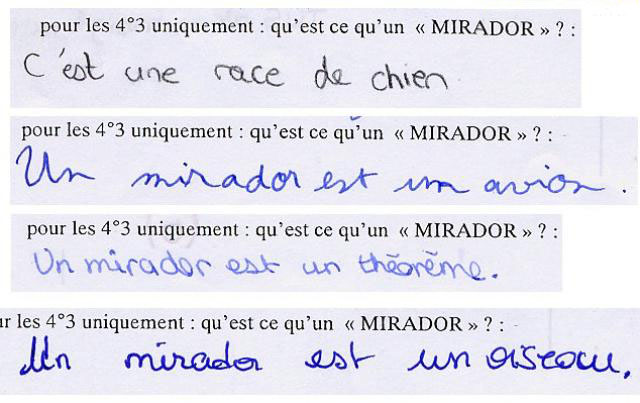 pour les 4°3 uniquement : qu'est ce qu'un « MIRADOR » ? :
C'est une race de chien
pour les 4°3 uniquement : qu'est ce qu'un « MIRADOR » ? :
Un mirador est un avion.
pour les 4°3 uniquement : qu'est ce qu'un « MIRADOR » ? :
Un mirador est un théorème.
ur les 4°3 uniquement : qu'est ce qu'un « MIRADOR » ? :
Un mirador est un oiseau.